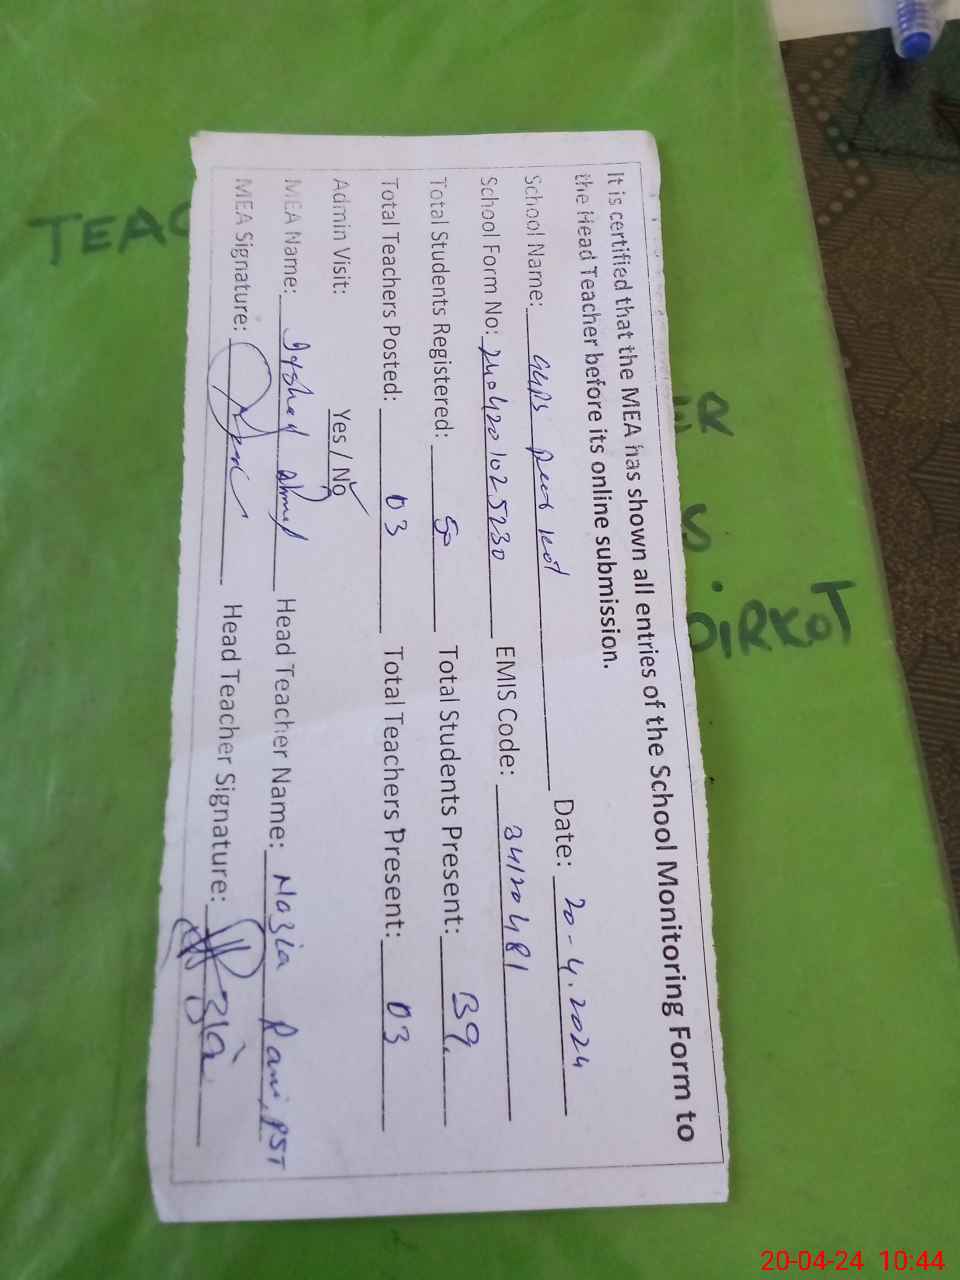 It is certified that the MEA has shown all entries of the School Monitoring Form to
the Head Teacher before its online submission.
School Name: GGPS peer kot Date: 20-4.2024
School Form No: 2404201025230 EMIS Code: 34120481
Total Students Registered: 50 Total Students Present: 39.
Total Teachers Posted: 03 Total Teachers Present: 03
Admin Visit: Yes / No
MEA Name: Irshad Ahmed Head Teacher Name: Nazia Rani, PST
MEA Signature: Head Teacher Signature:
TEAC
ER
S
OIRKOT
20-04-24 10:44